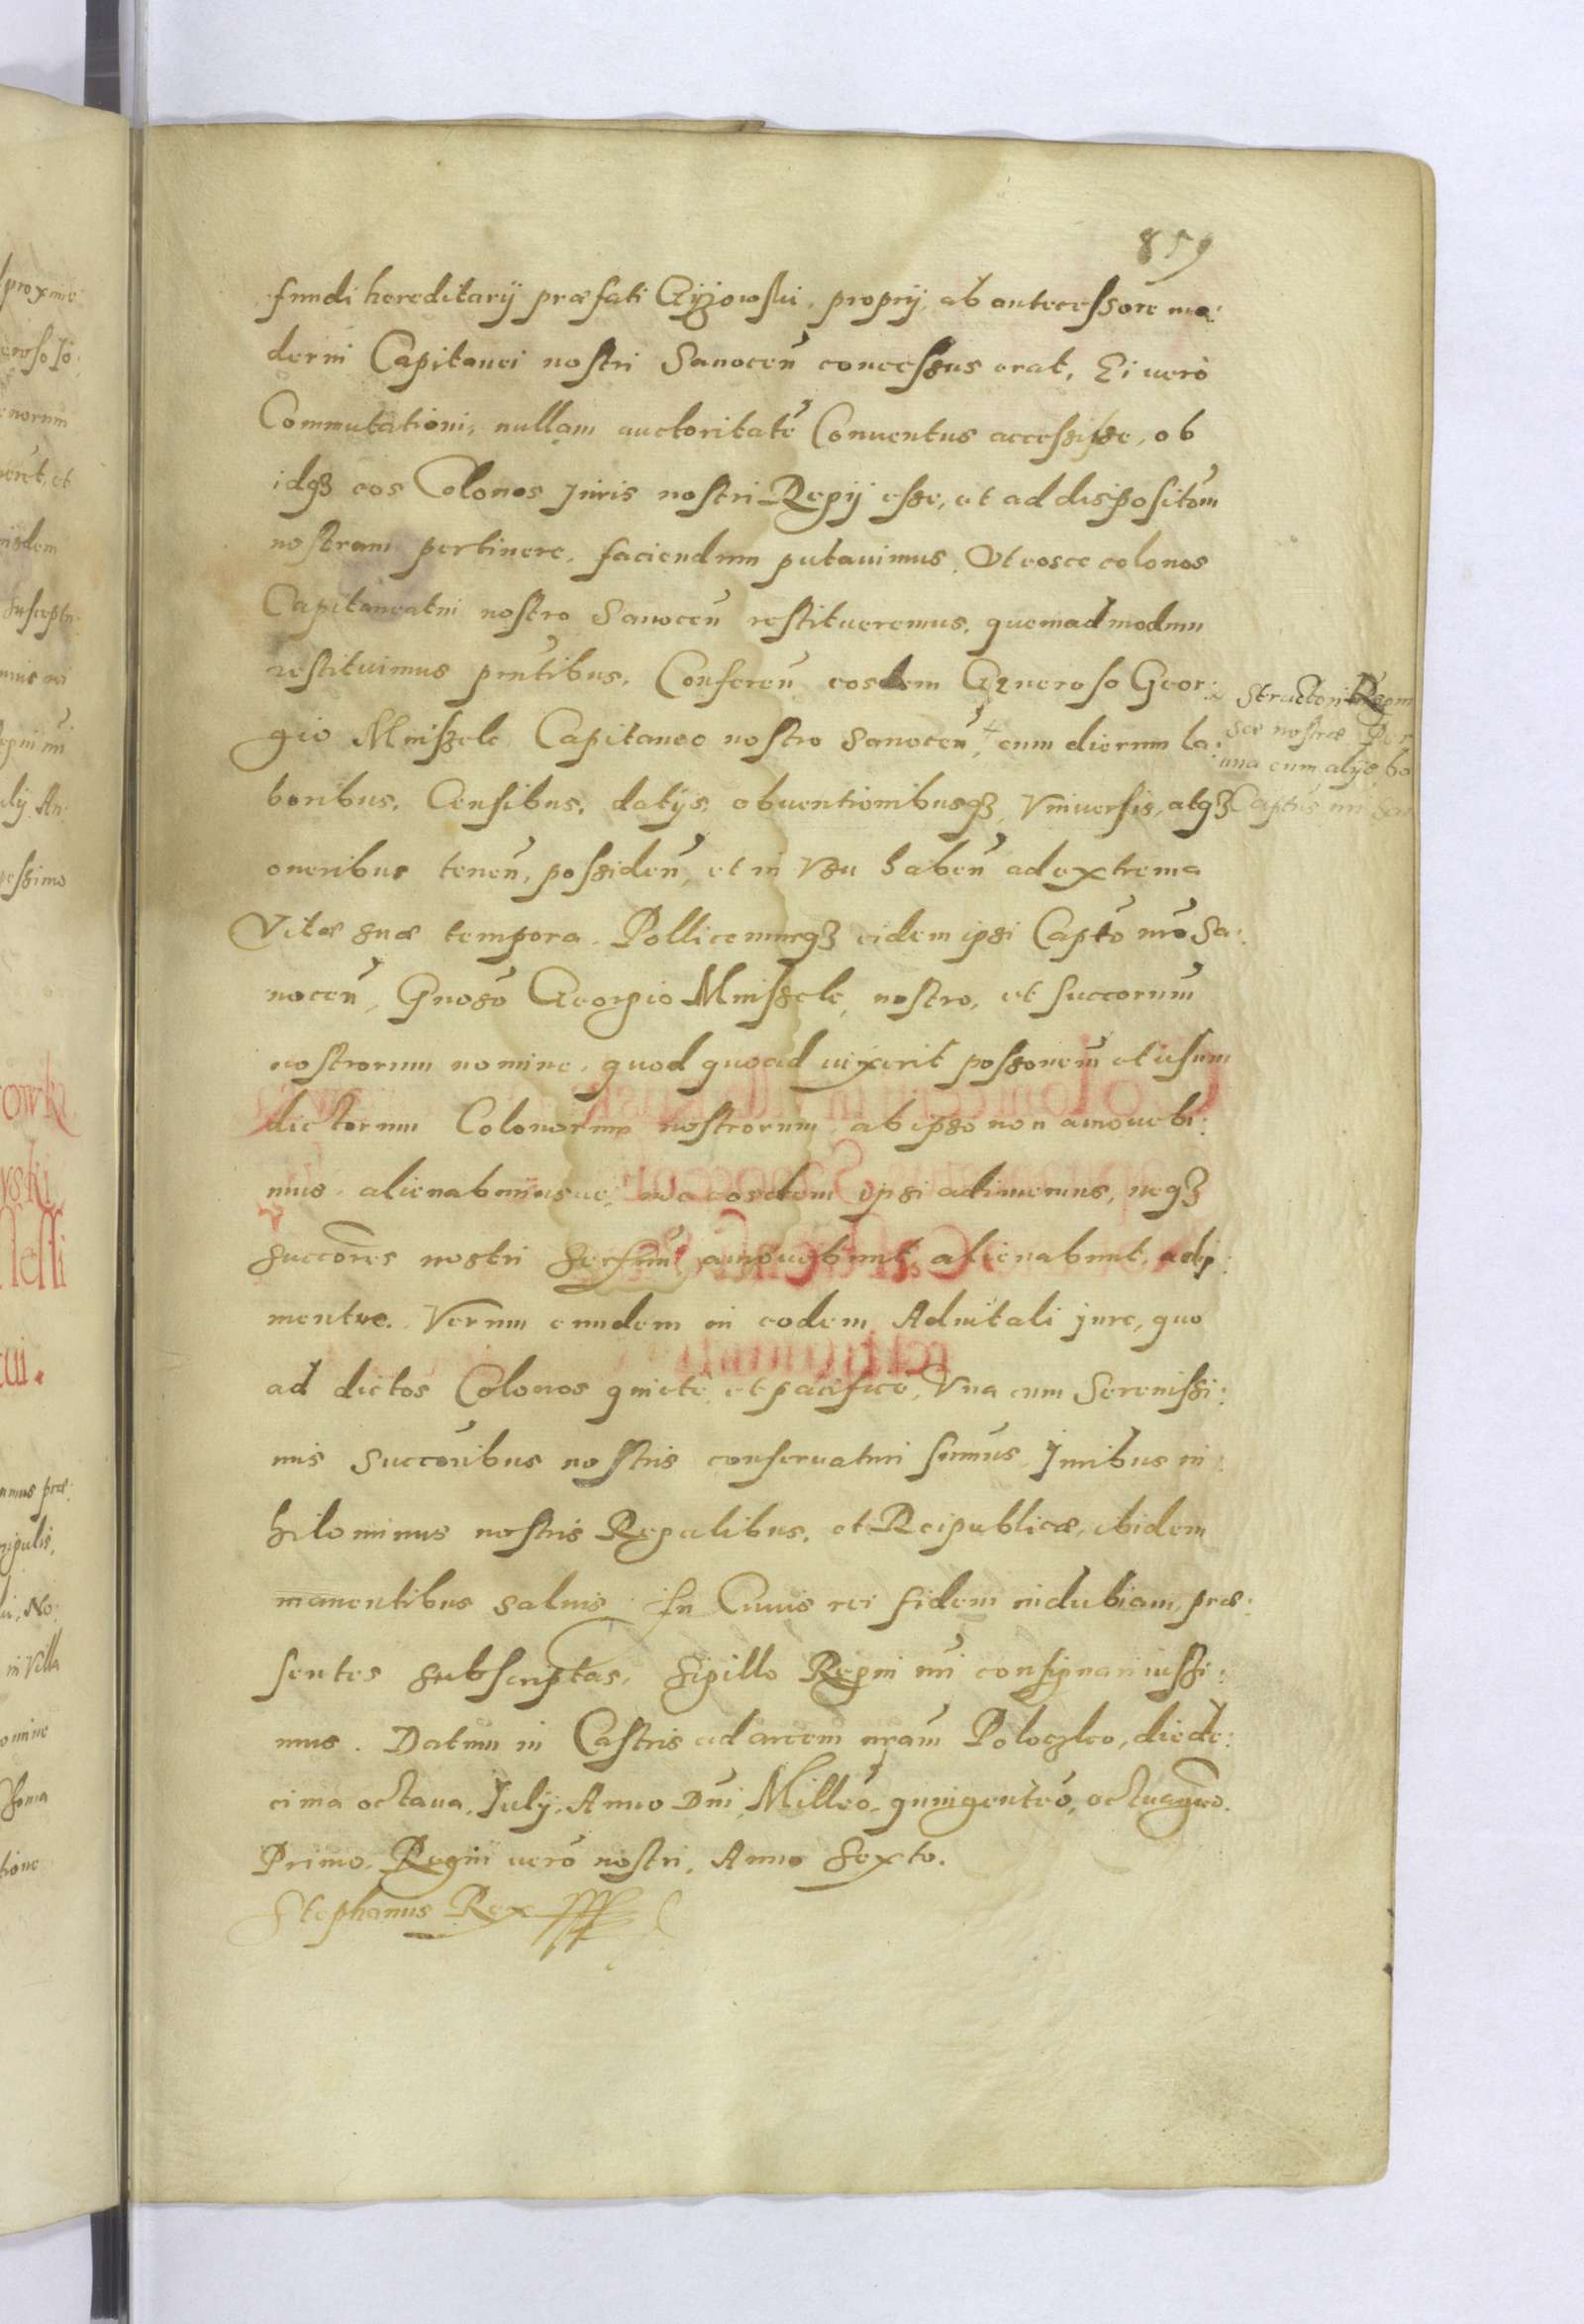 859
fundi hereditarij præfati Gyzowski, proprij, ab antecessore mo:
derni Capitanei nostri Sanoceñ concessus erat, Ei uerò
Commutationi, nullam auctoritatẽ Conuentus accessisse, ob
idqȝ eos Colonos Juris nostri Regij esse, et ad disposito͠m
nostram pertinere, faciendum putauimus, Vt eosce colonos
Capitaneatui nostro Sanoceñ restitueremus, quemadmodum
restituimus pñtibus, Confereñ eosdem Generoso Geor:
gio Mniszek Capitaneo nostro Sanoceñ, + cum dierum la:
boribus, Censibus, datijs, obuentionibusqȝ Vniuersis, atqȝ
oneribus teneñ, possideñ, et in Vsu habeñ ad extrema
Vitæ suæ tempora. Pollicemurqȝ eidem ipsi Captõ nrõ Sa:
noceñ, Gnoso Georgio Mniszek, nostro, et succorum
nostrorum nomine, quod quoad uixerit possonem et usum
dictorum Colonorum nostrorum, ab ipso non amouebi:
mus, alienabimusue, nec eosdem ipsi adimemus, neqȝ
succores nostri Sermi amouebunt, alienabunt, adi:
mentue. Verum eundem in eodem Aduitali jure, quo
ad dictos Colonos quietè et pacificè, Vna cum Serenissi:
mis Succoribus nostris conseruaturi sumus, Juribus ni
hilominus nostris Regalibus, et Reipublicæ, ibidem
manentibus saluis. In Cuius rei fidem indubiam, præ:
sentes subscriptas, sigillo Regni nri consignari iussi:
mus. Datum in Castris ad arcem nram Poloczko, die de:
cima octaua, July, Anno Dni, Milleõ, quingenteõ, octuageo.
Primo, Regni uerò nostri, Anno Sexto.
Stephanus Rex
Structori Regni
sæ nostræ
una cum alijs bo
Captus nri